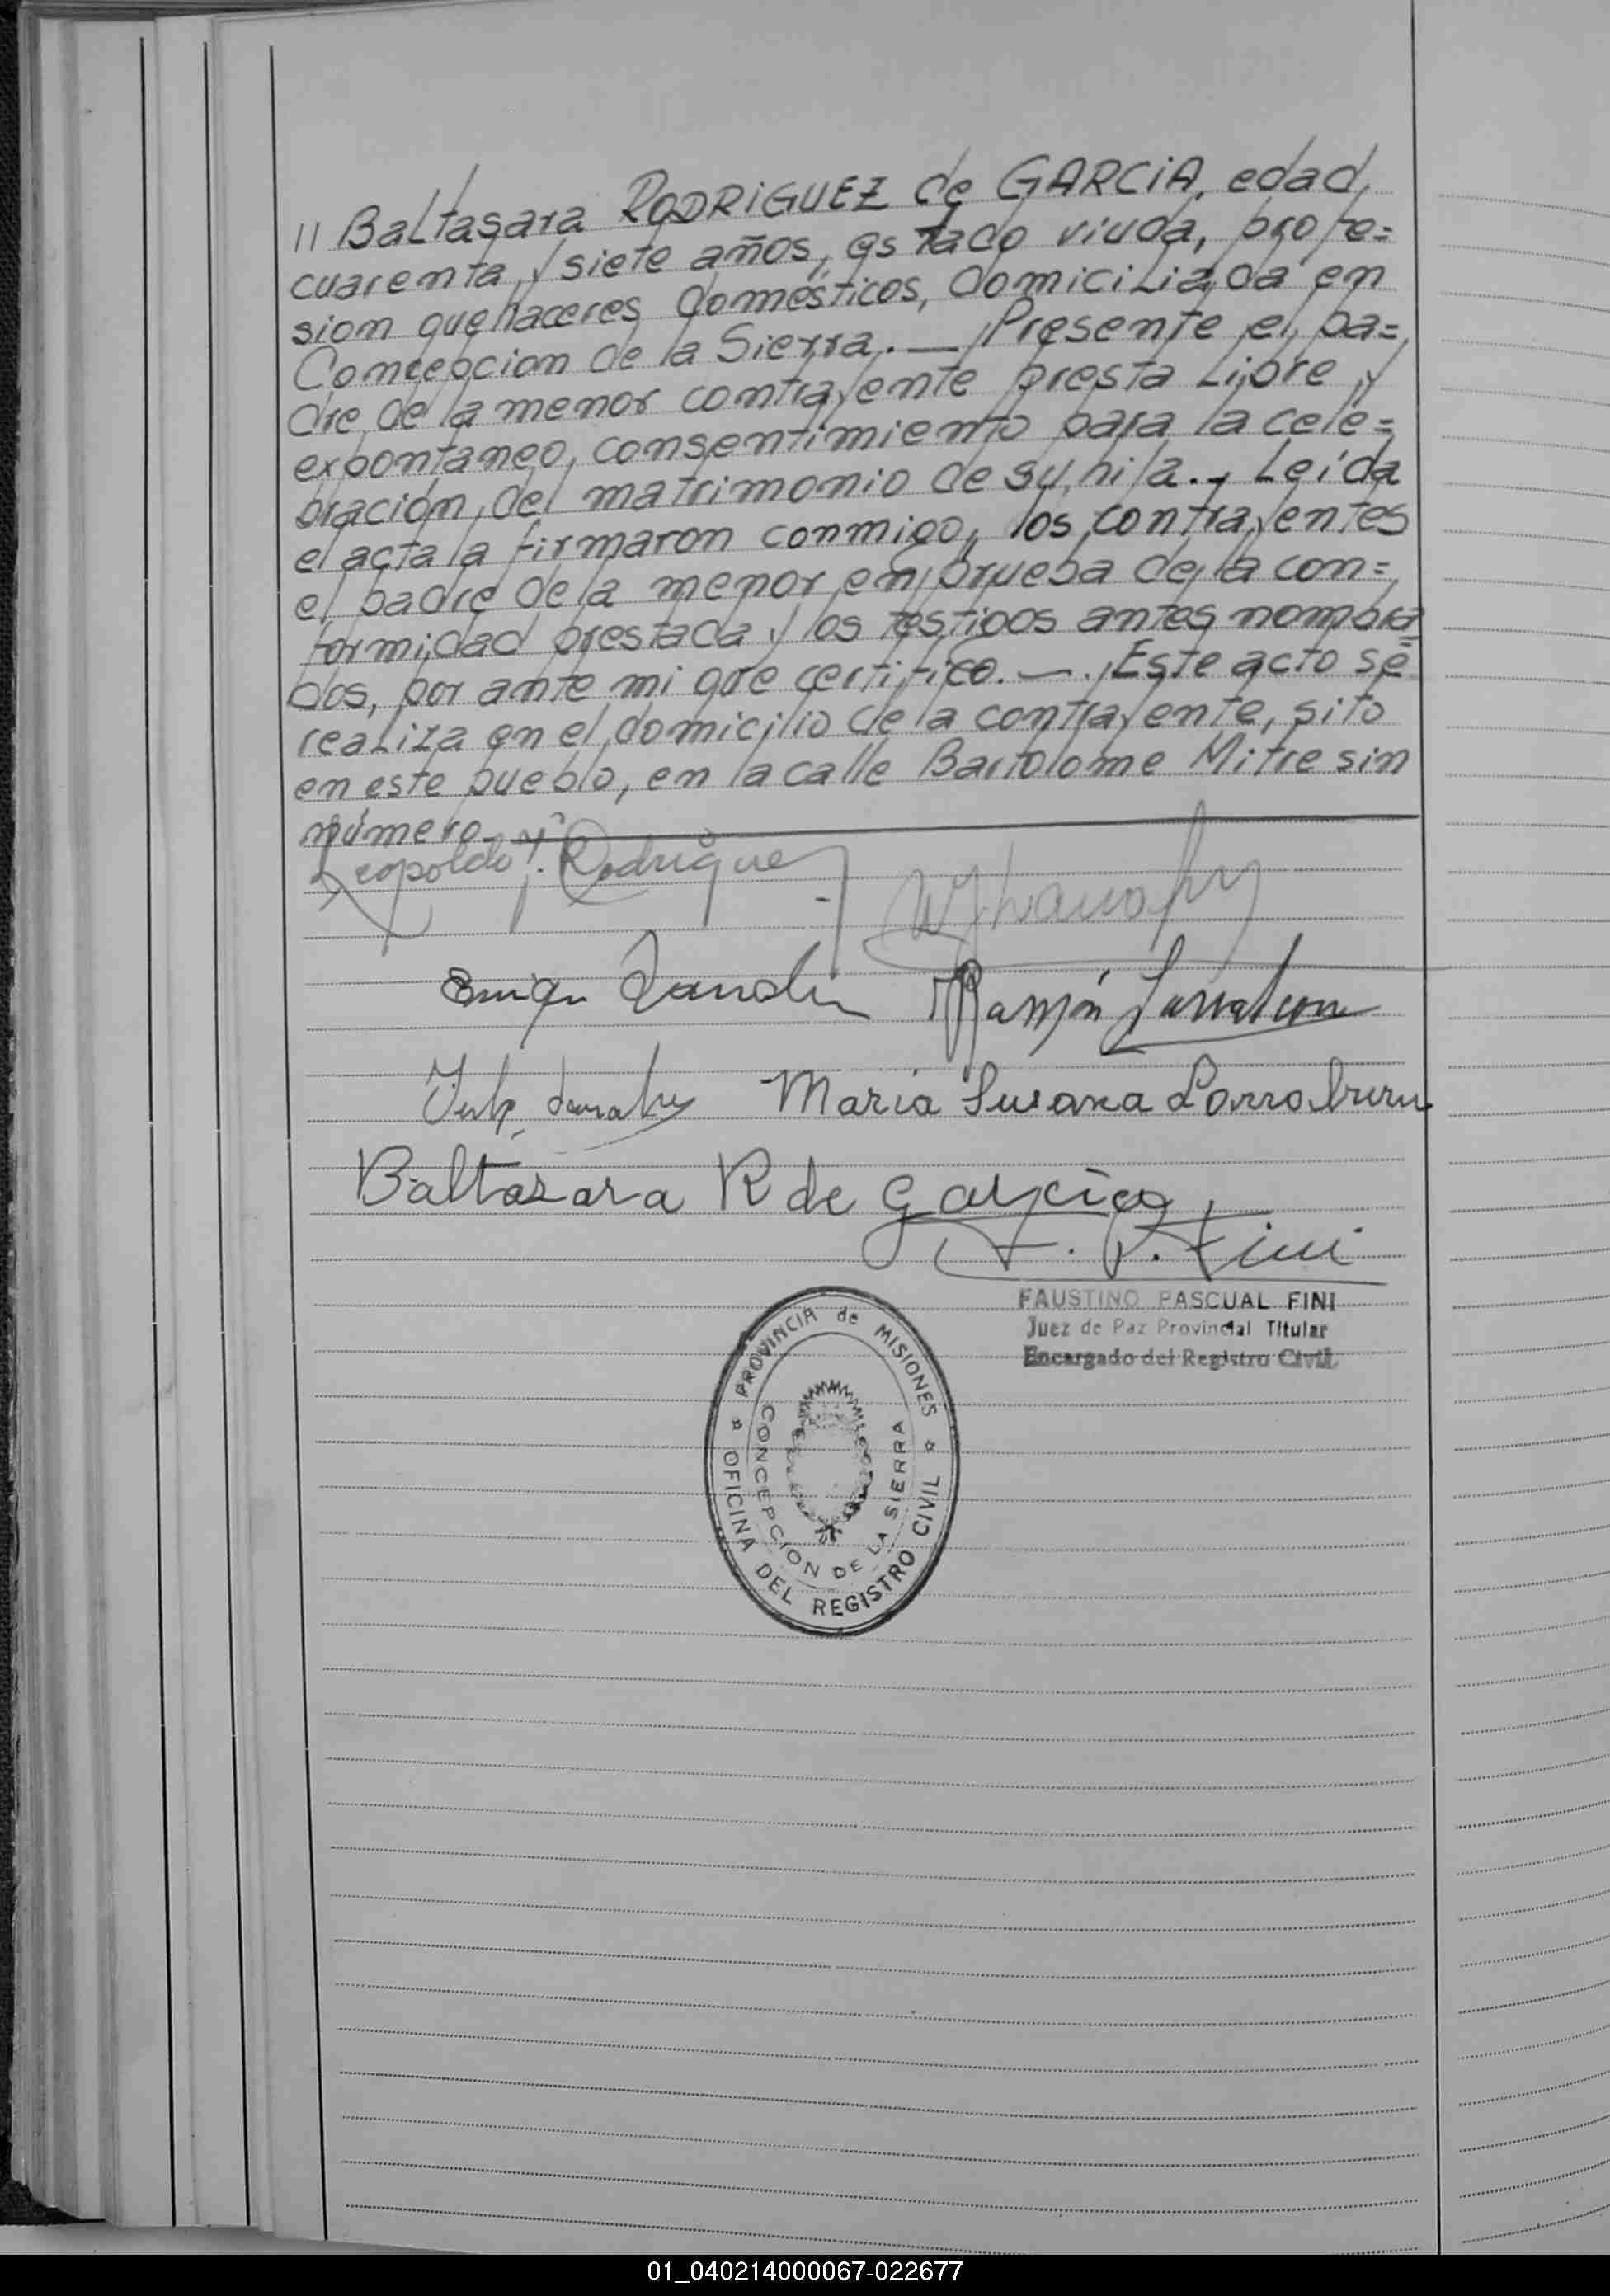 // Baltasara RODRIGUEZ de GARCIA, edad,
cuarenta y siete años, estado viuda, profe=
sion quehaceres domésticos, domiciliada en
Concepcion de la Sierra.— Presente el pa=
dre de la menor contrayente presta libre y
expontaneo, consentimiento para la cele=
bración, del matrimonio de su hija.- Leída
el acta la firmaron conmigo, los contrayentes
el padre de la menor en prueba de la con=
formidad prestada y los testigos antes nombra=
dos, por ante mi que certifico.—. Este acto se
realiza en el domicilio de la contrayente, sito
en este pueblo, en la calle Bartolome Mitre sin
número.-
Leopoldo Rodriguez
Ramón
Maria Susana Larraburu
Baltasara R de Garcia
F. P. Fini
FAUSTINO PASCUAL FINI
Juez de Paz Provincial Titular
Encargado del Registro Civil
PROVINCIA de MISIONES
OFICINA DEL REGISTRO CIVIL
CONCEPCION DE LA SIERRA
01_040214000067-022677